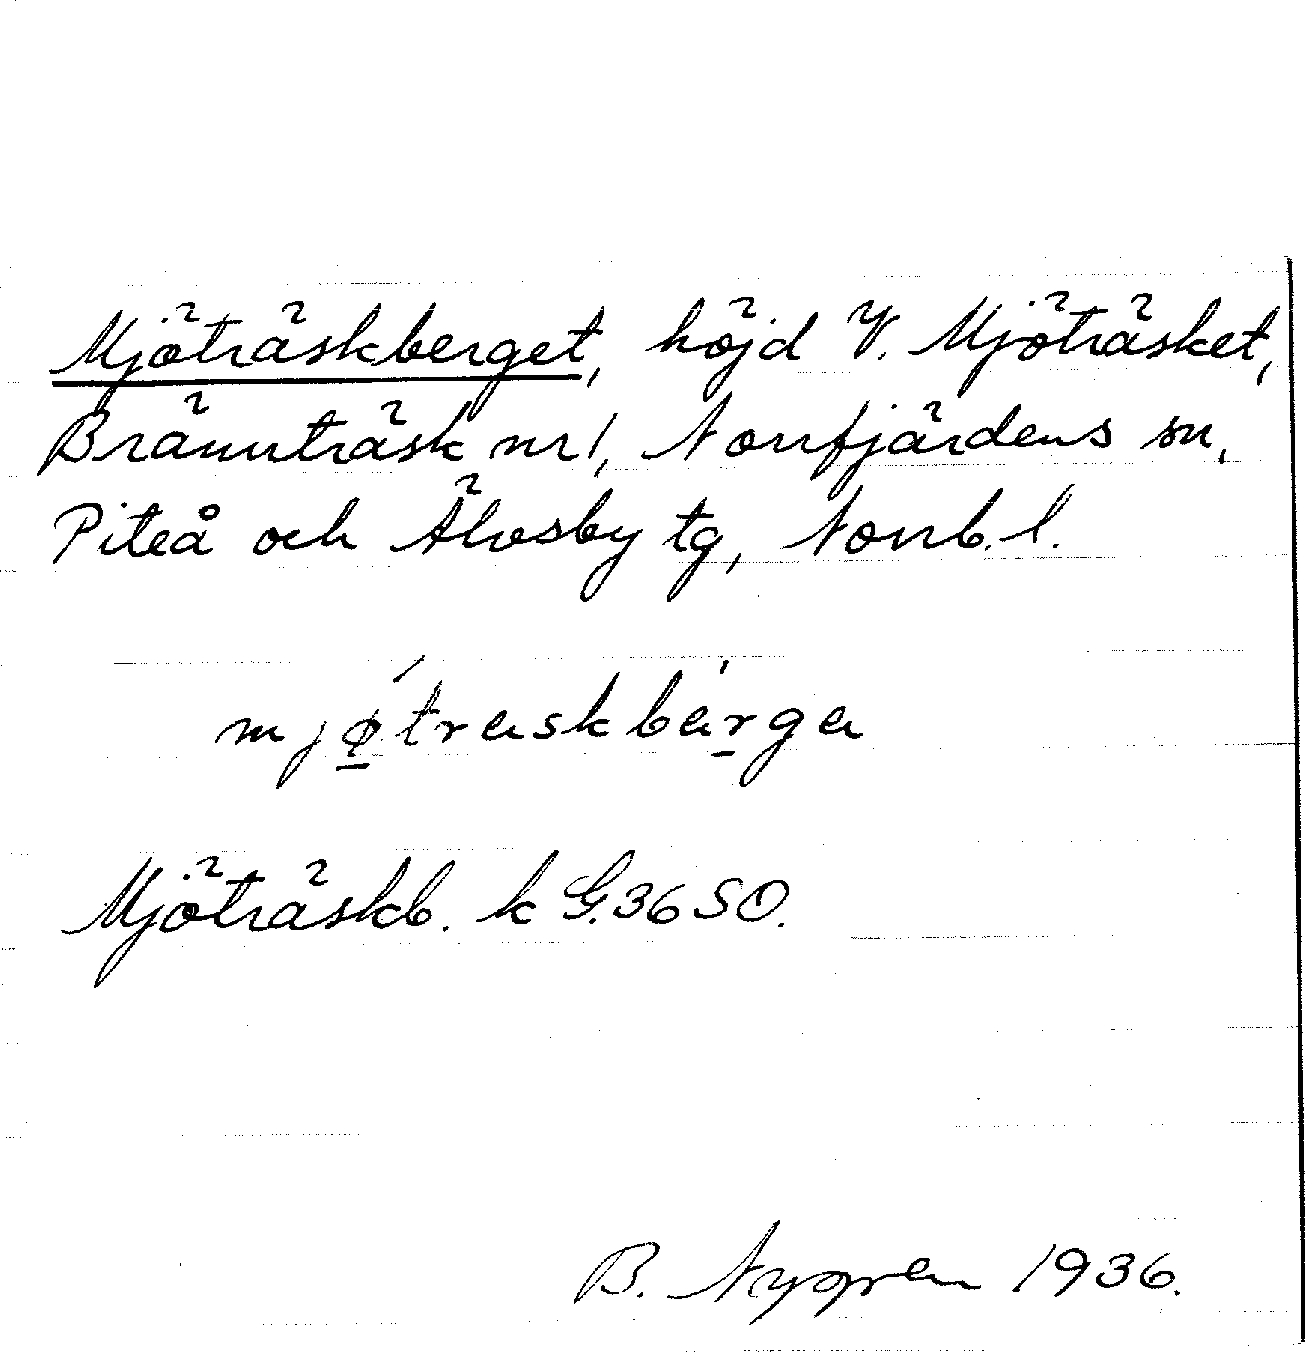 Mjöträskberget, höjd V. Mjöträsket,
Brännträsk nr 1, Norrfjärdens sn,
Piteå och Älvsby tg, Norrb. l.
mjǿ̱traskbár̠ga
Mjöträskb. k G. 36 SO.
B. Nygren 1936.